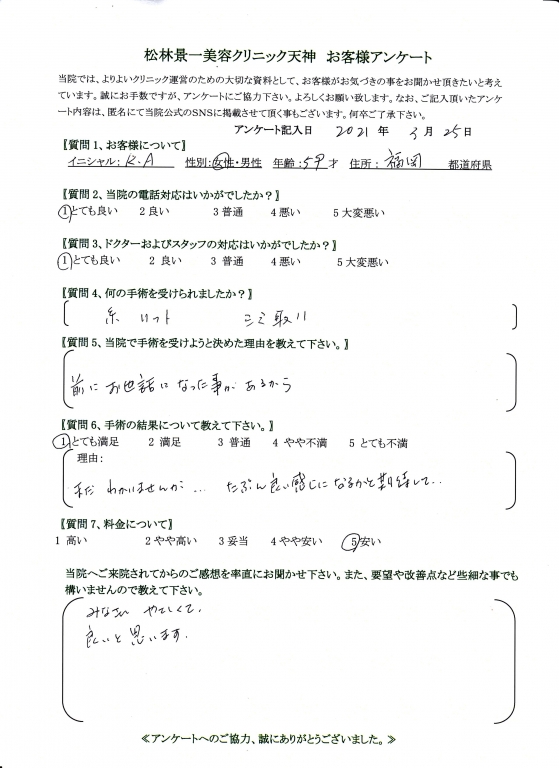 松林景一美容クリニック天神　お客様アンケート
当院では、よりよいクリニック運営のための大切な資料として、お客様がお気づきの事をお聞かせ頂きたいと考え
ています。誠にお手数ですが、アンケートにご協力下さい。よろしくお願い致します。なお、ご記入頂いたアンケ
ート内容は、匿名にて当院公式のSNSに掲載させて頂く事もございます。何卒ご了承下さい。
アンケート記入日　2021 年　3 月 25 日
〖質問 1、お客様について〗
イニシャル：K.A　性別：女性・男性　年齢：59 才　住所：福岡　都道府県
〖質問 2、当院の電話対応はいかがでしたか？〗
1 とても良い　2 良い　3 普通　4 悪い　5 大変悪い
〖質問 3、ドクターおよびスタッフの対応はいかがでしたか？〗
1 とても良い　2 良い　3 普通　4 悪い　5 大変悪い
〖質問 4、何の手術を受けられましたか？〗
糸リフト　シミ取り
〖質問 5、当院で手術を受けようと決めた理由を教えて下さい。〗
前にお世話になった事があるから
〖質問 6、手術の結果について教えて下さい。〗
1 とても満足　2 満足　3 普通　4 やや不満　5 とても不満
理由：
まだ わかいませんが… たぶん良い感じになるかと期待して..
〖質問 7、料金について〗
1 高い　2 やや高い　3 妥当　4 やや安い　5 安い
当院へご来院されてからのご感想を率直にお聞かせ下さい。また、要望や改善点など些細な事でも
構いませんので教えて下さい。
みなさん やさしくて、
良いと思います。
≪アンケートへのご協力、誠にありがとうございました。≫